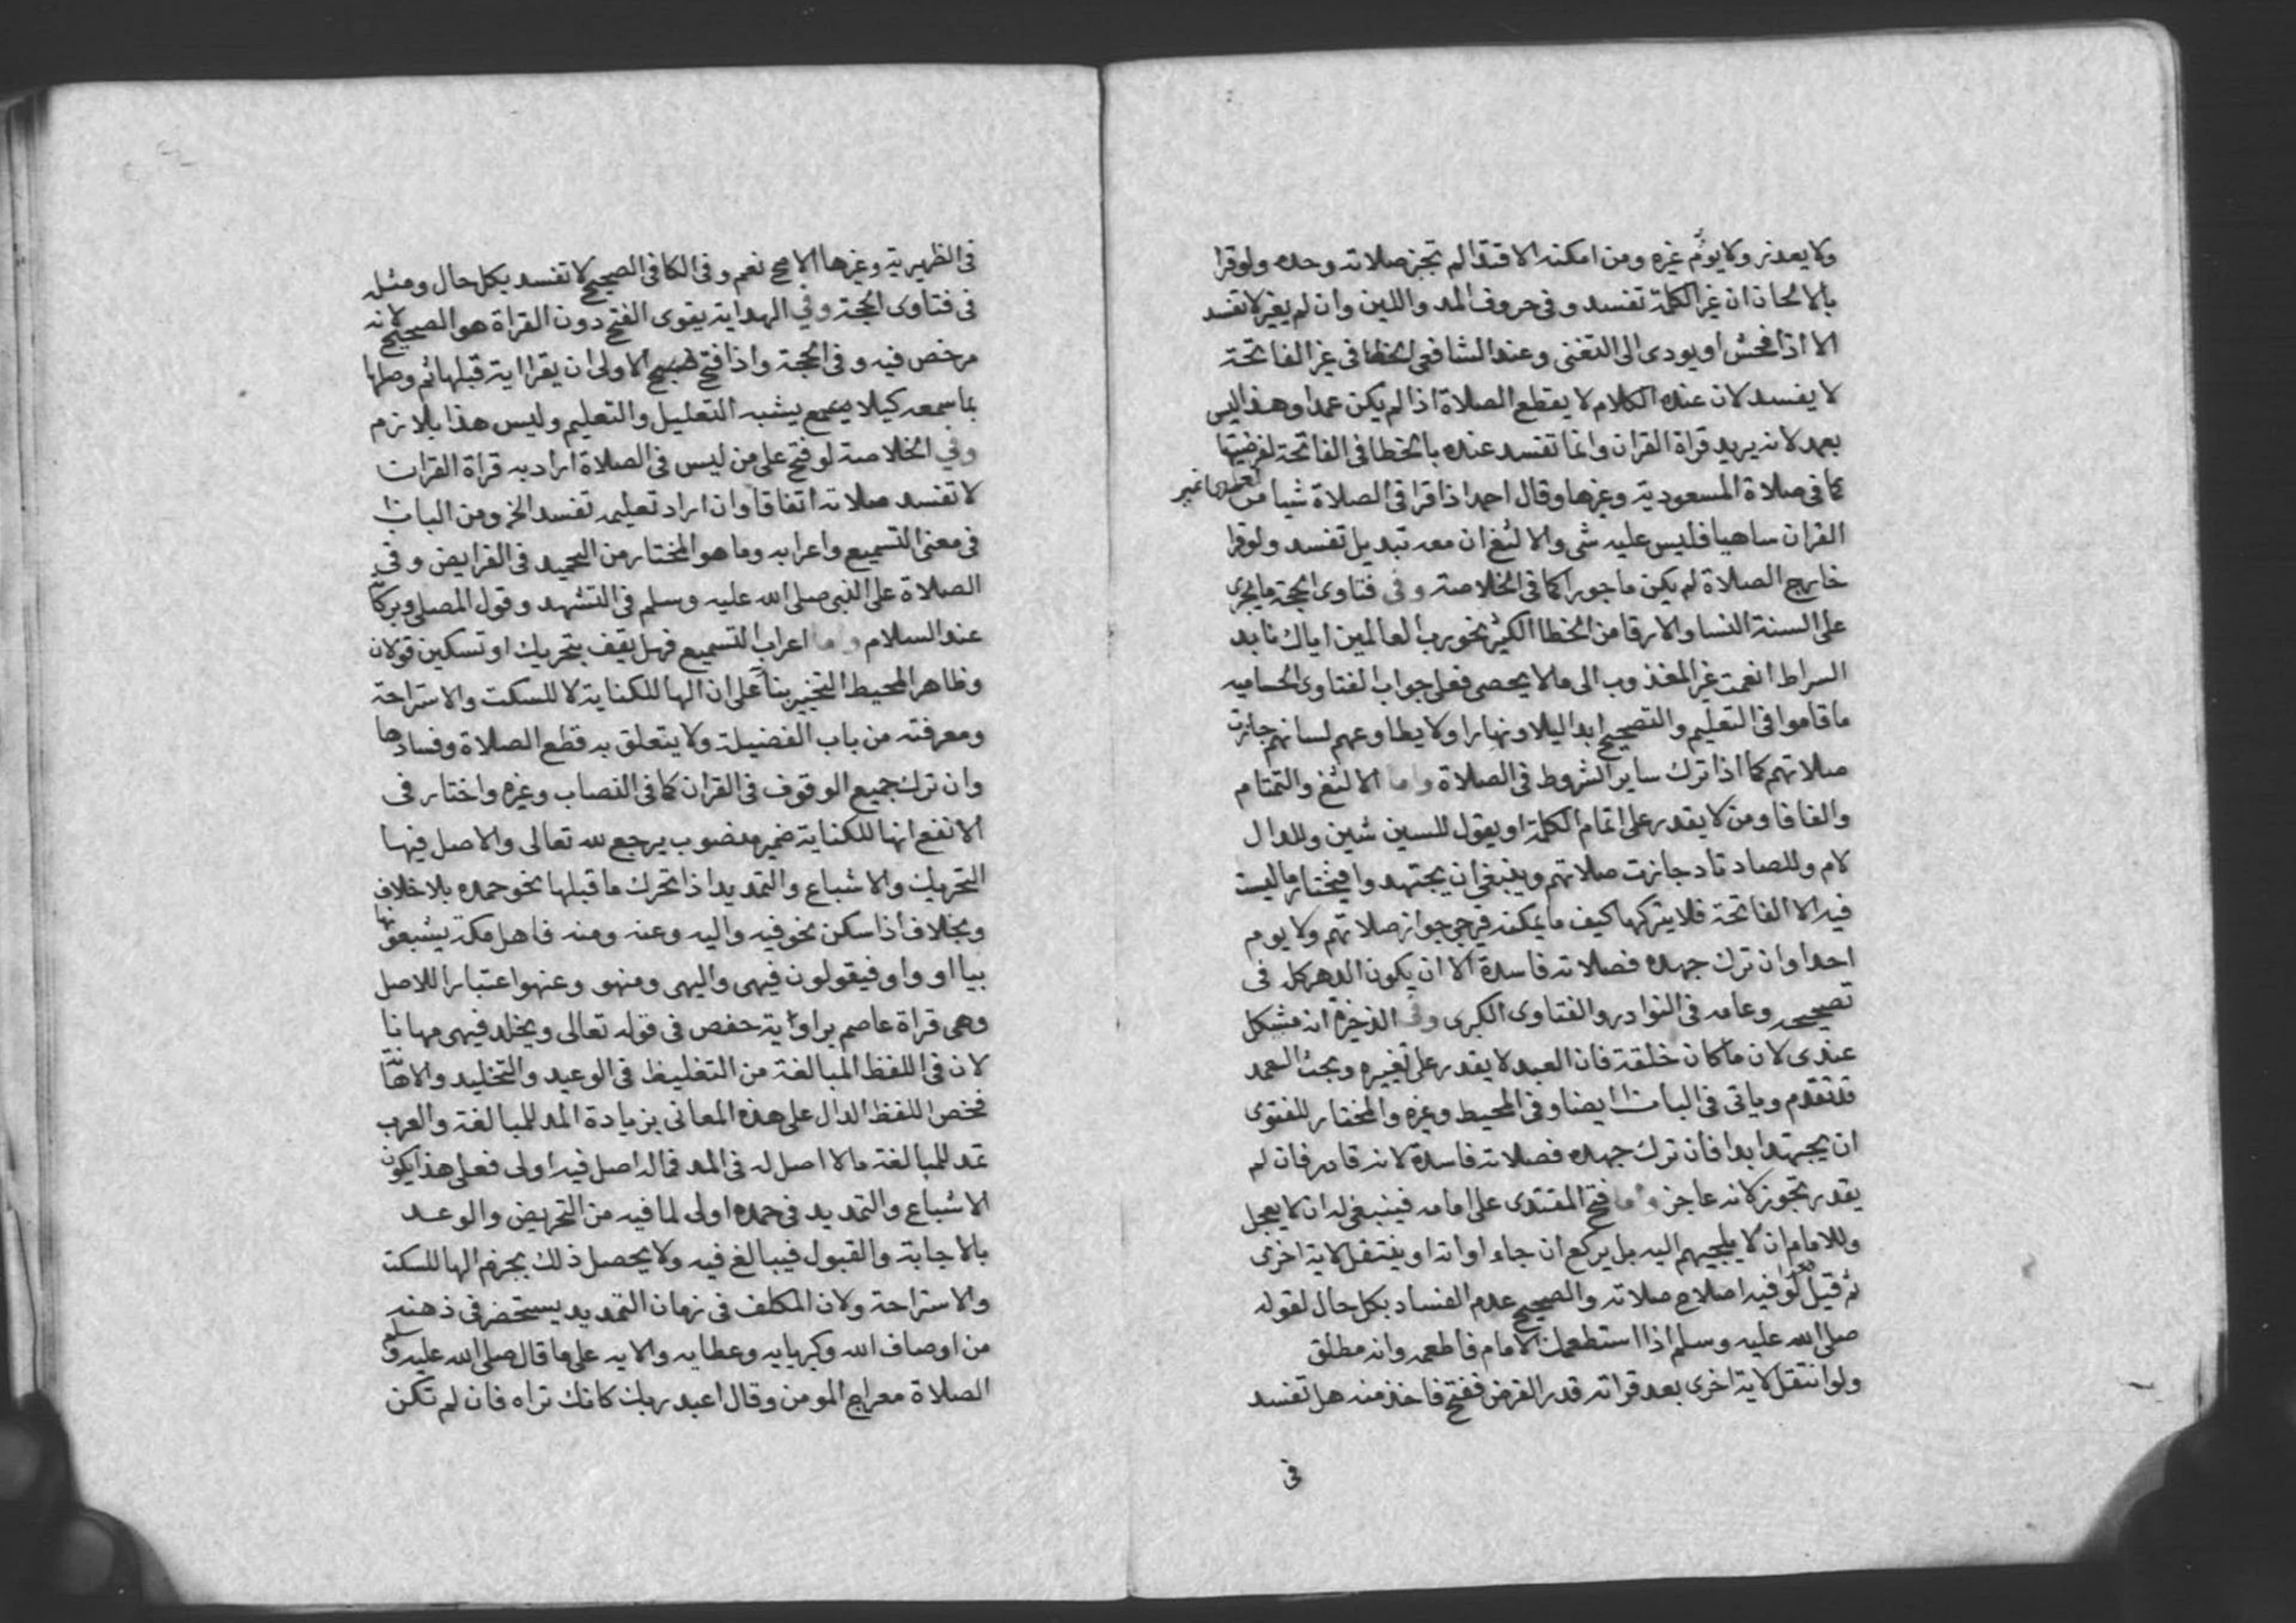 ولا يعذر ولا يؤم غيره ومن امكنه الاقتدا لم تجز صلاته وحده ولو قرا
بالالحان ان غير الكلمة تفسد وفي حروف المد واللين وان لم يغير لا تفسد
الا اذا فحش او يودى الى التغنى وعند الشافعى الخطا فى غير الفاتحة
لا يفسد لان عنده الكلام لا يقطع الصلاة اذا لم يكن عمدا وهذا ليس
بعمد لانه يريد قراة القران وانما تفسد عنده بالخطا فى الفاتحة لفرضيتها
كما فى صلاة المسعودية وغيرها وقال احمد اذا قرا فى الصلاة شيا من
القران ساهيا فليس عليه شى والالثغ ان معه تبديل تفسد ولو قرا
خارج الصلاة لم يكن ماجورا كما فى الخلاصة وفى فتاوى الحجة ما يجرى
على السنة النسا والارقا من الخطا الكثير نحو رب العالمين اياك نابد
السراط انعمت غير المغذوب الى ما لا يحصى فعلى جواب الفتاوى الحساميه
ما قاموا فى التعليم والتصحيح ابدا ليلا ونهارا ولا يطاوعهم لسانهم جازت
صلاتهم كما اذا ترك ساير الشروط فى الصلاة واما الالثغ والتمتام
والفافا ومن لا يقدر على اتمام الكلمة او يقول للسين شين وللدال
لام وللصاد تاد جازت صلاتهم وينبغى ان يجتهدوا فيختار ما ليست
فيه الا الفاتحة فلا يتركها كيف ما يمكنه فيرجى جواز صلاتهم ولا يوم
احدا وان ترك جهده فصلاته فاسدة الا ان يكون الدهر كله فى
تصحيحه وعامه فى النوادر والفتاوى الكبرى وفى الذخيرة انه مشكل
عندى لان ما كان خلقة فان العبد لا يقدر على تغييره وبحث العمد
قد تقدم وياتى فى الباب ايضا وفى المحيط وغيره والمختار للفتوى
ان يجتهد ابدا فان ترك جهده فصلاته فاسدة لانه قادر فان لم
يقدر تجوز لانه عاجز واما فتح المقتدى على امامه فينبغى له ان لا يعجل
وللامام ان لا يلجيهم اليه بل يركع ان جاء اوانه او ينتقل لاية اخرى
ثم قيل لو فيه اصلاح صلاته والصحيح عدم الفساد بكل حال لقوله
صلى الله عليه وسلم اذا استطعمك الامام فاطعمه وانه مطلق
ولو انتقل لاية اخرى بعد قراته قدر الفرض ففتح فاخذ منه هل تفسد
فى
فى الظهيرية وغيرها الاصح نعم وفى الكافى الصحيح لا تفسد بكل حال ومثله
فى فتاوى الحجة وفي الهداية يقوى الفتح دون القراة هو الصحيح لانه
مرخص فيه وفى الحجة واذا فتح الاولى ان يقرا اية قبلها ثم وصلها
بما سمعه كيلا يشبه التعليل والتعليم وليس هذا بلازم
وفي الخلاصة لو فتح على من ليس فى الصلاة اراد به قراة القران
لا تفسد صلاته اتفاقا وان اراد تعليمه تفسد الخ ومن الباب
فى معنى التسميع واعرابه وما هو المختار من التحميد فى الفرايض وفى
الصلاة على النبى صلى الله عليه وسلم فى التشهد وقول المصلى وبركاته
عند السلام واما اعراب التسميع فهل يقف بتحريك او تسكين قولان
وظاهر المحيط التخيير بنآ على ان الها للكناية لا للسكت والاستراحة
ومعرفته من باب الفضيلة ولا يتعلق به قطع الصلاة وفسادها
وان ترك جميع الوقوف فى القران كما فى النصاب وغيره واختار فى
الانفع انها للكناية ضمير منصوب يرجع لله تعالى والاصل فيها
التحريك والاشباع والتمديد اذا تحرك ما قبلها نحو حمده بلا خلاف
وبخلاف اذا سكن نحو فيه واليه وعنه ومنه فاهل مكة يشبعونها
بيا او واو فيقولون فيهى واليهى ومنهو وعنهو اعتبارا للاصل
وهى قراة عاصم برواية حفص فى قوله تعالى ويخلد فيهى مهانا
لان فى اللفظ المبالغة من التغليظ فى الوعيد والتخليد والاهانة
فخص اللفظ الدال على هذه المعانى بزيادة المد للمبالغة والعرب
تمد للمبالغة ما لا اصل له فى المد فما له اصل فيه اولى فعلى هذا يكون
الاشباع والتمديد فى حمده اولى لما فيه من التحريض والوعد
بالاجابة والقبول فيبالغ فيه ولا يحصل ذلك بجزم الها للسكت
والاستراحة ولان المكلف فى زمان التمديد يستحضر فى ذهنه
من اوصاف الله وكبريايه وعطايه والايه على ما قال صلى الله عليه وسلم
الصلاة معراج المومن وقال اعبد ربك كانك تراه فان لم تكن